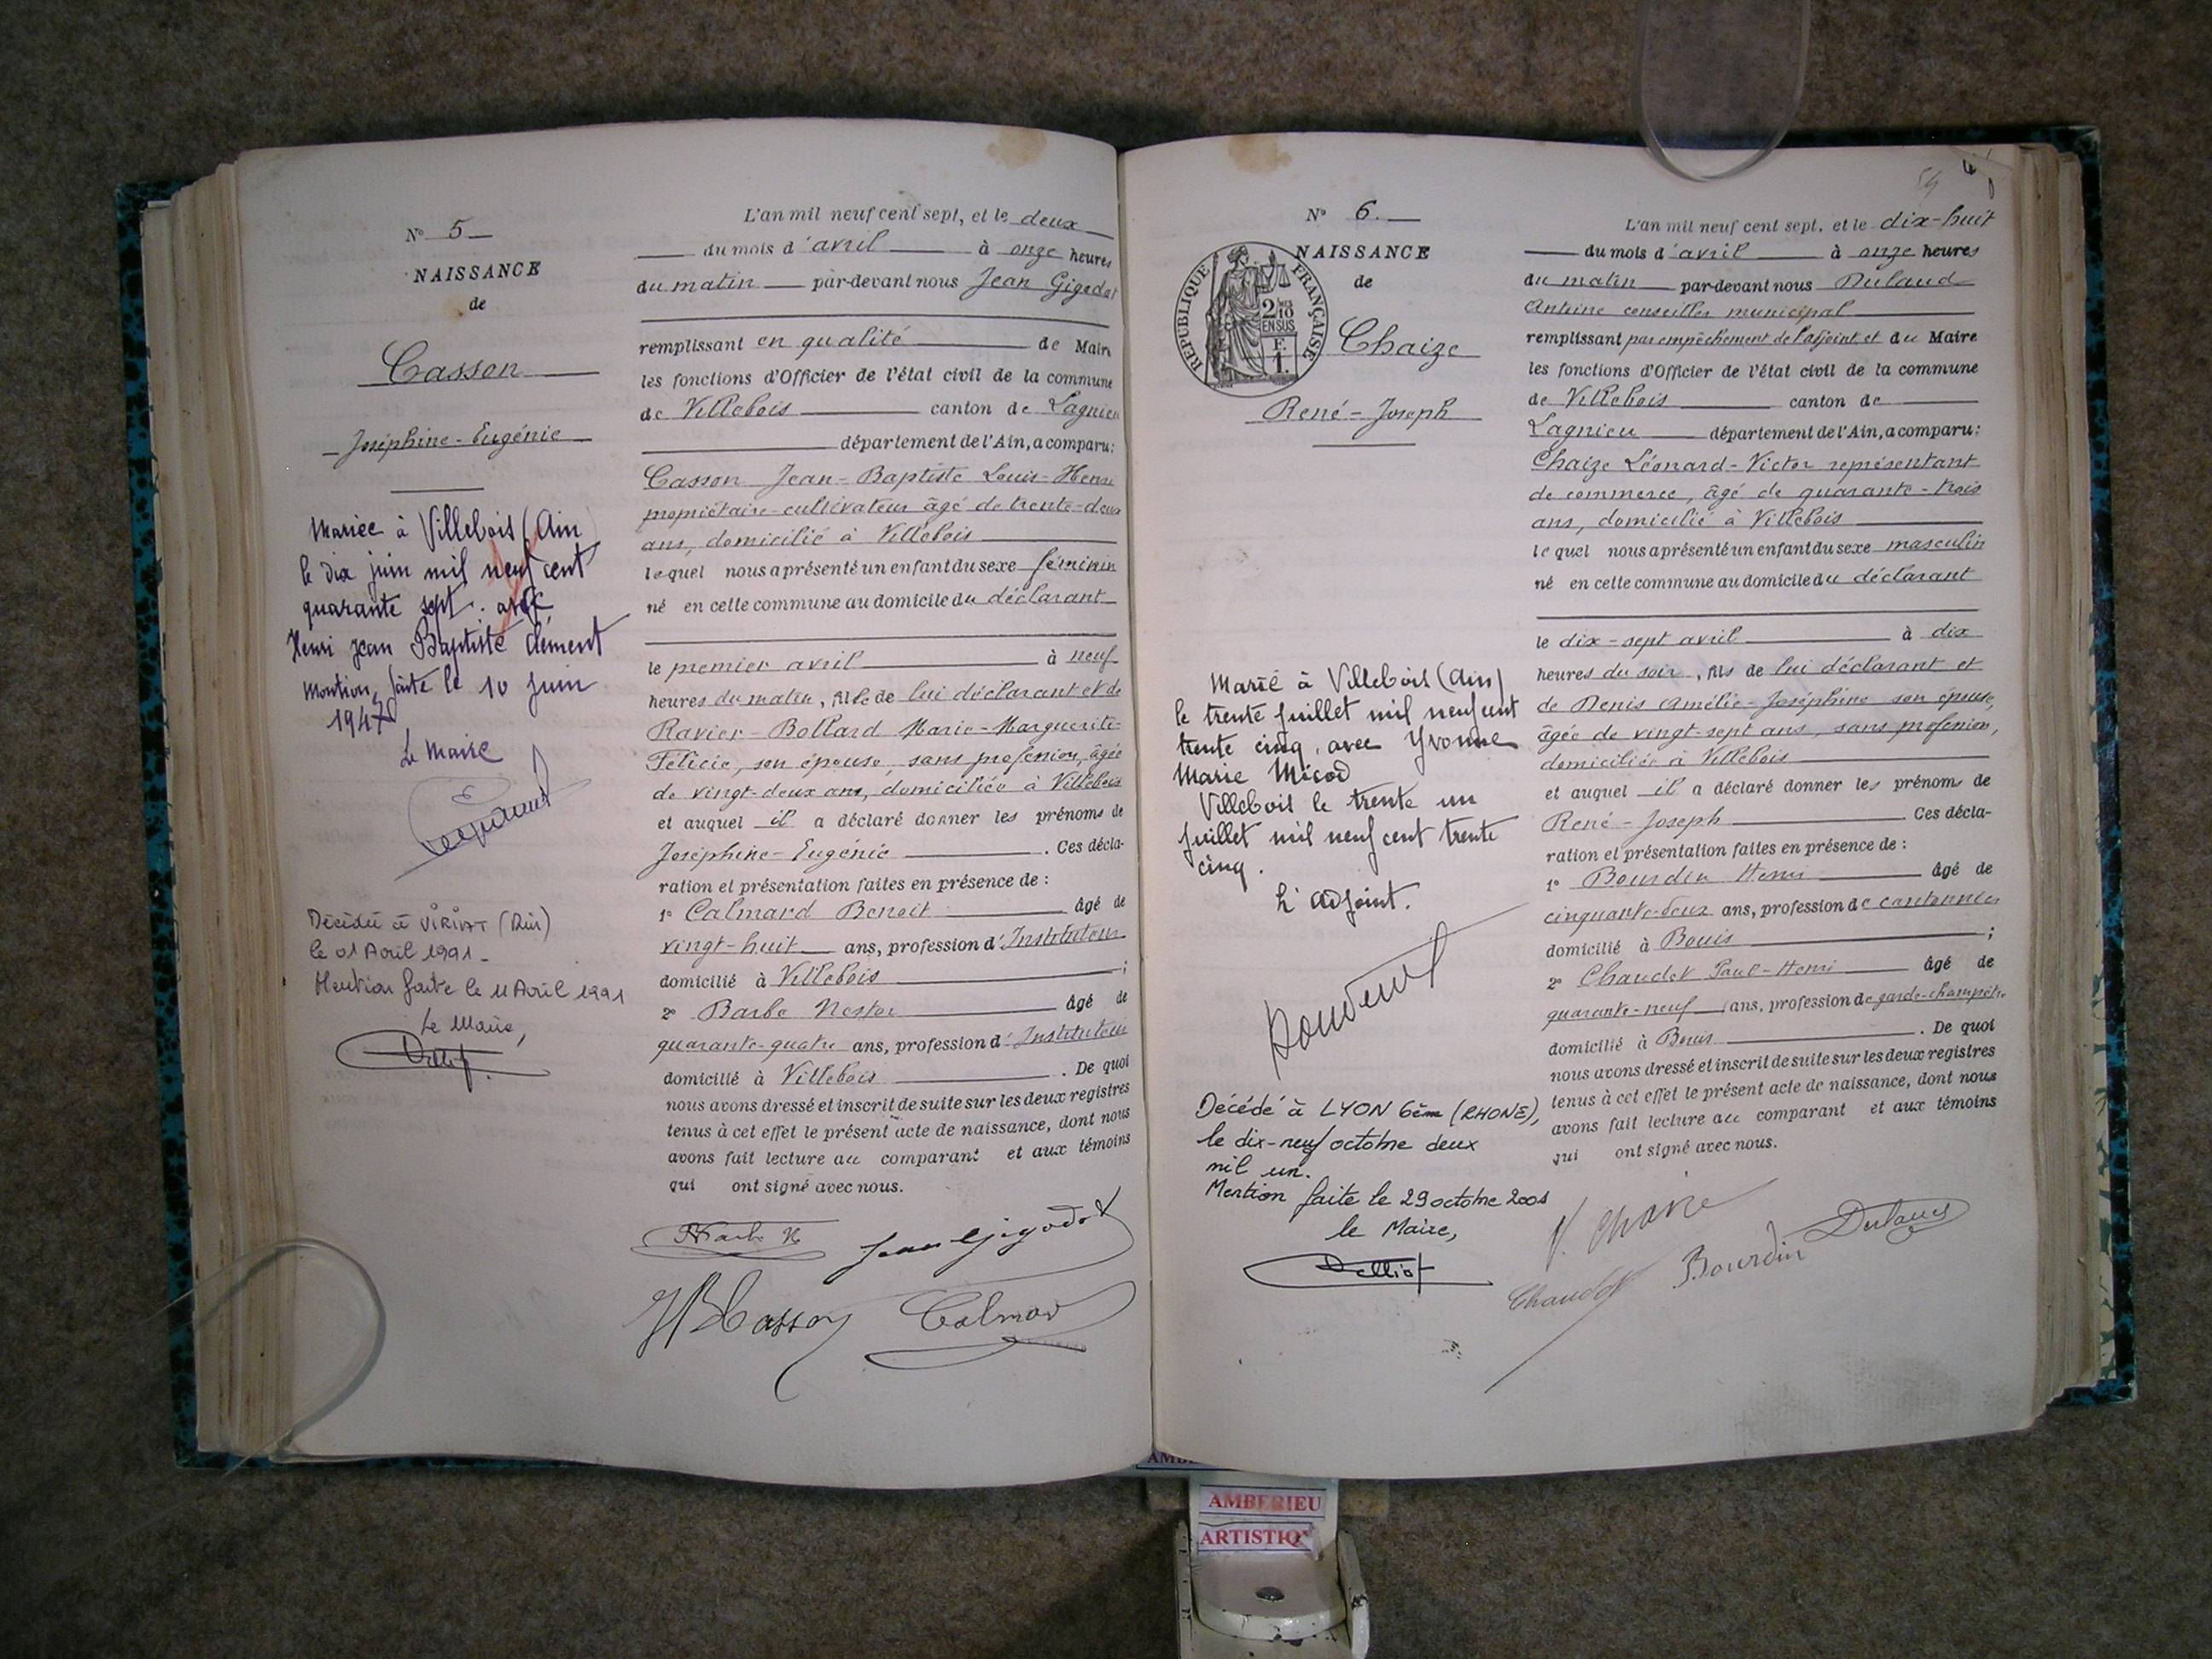 N° 5
NAISSANCE
de
Casson
Joséphine-Eugénie
Mariée à Villebois (Ain
le dix juin mil neuf cent
quarante sept. avec
Henri Jean Baptiste Clément
faite le 10 juin
1947
Le Maire
Décédée à VIRIAT (Ain)
le 01 Avril 1991-
Mention faite le 11 Avril 1991
Le Maire,
L'an mil neuf cent sept, et le deux
du mois d'avril à onze heures
du matin par-devant nous Jean Gigodot
remplissant en qualité de Maire
les fonctions d'Officier de l'état civil de la commune
de Villebois canton de Lagnieu
département de l'Ain, a comparu:
Casson Jean-Baptiste Louis-Henri
propriétaire-cultivateur âgé de trente-deux
ans, domicilié à Villebois
lequel nous a présenté un enfant du sexe féminin
né en cette commune au domicile du déclarant
le premier avril à neuf
heures du matin, fille de lui déclarant et de
Ravier-Bollard Marie-Marguerite-
Félicie, son épouse, sans profession, âgée
de vingt-deux ans, domiciliée à Villebois
et auquel il a déclaré donner les prénoms de
Joséphine-Eugénie. Ces décla-
ration et présentation faites en présence de :
1° Calmard Benoit âgé de
vingt-huit ans, profession d'Instituteur
domicilié à Villebois ;
2° Barbe Nestor âgé de
quarante-quatre ans, profession d'Instituteur
domicilié à Villebois. De quoi
nous avons dressé et inscrit de suite sur les deux registres
tenus à cet effet le présent acte de naissance, dont nous
avons fait lecture au comparant et aux témoins
qui ont signé avec nous.
Barbe N Jean Gigodot
JB Casson Calmard
54
N° 6.
NAISSANCE
de
REPUBLIQUE FRANÇAISE
2/10
EN SUS
F.
1.
Chaize
René-Joseph
Marié à Villebois (Ain)
le trente juillet mil neuf cent
trente cinq, avec Yvonne
Marie Micod
Villebois le trente un
juillet mil neuf cent trente
cinq.
L'adjoint.
Décédé à LYON 6ème (RHONE),
le dix-neuf octobre deux
mil un.
Mention faite le 29 octobre 2001
le Maire,
L'an mil neuf cent sept, et le dix-huit
du mois d'avril à onze heures
du matin par-devant nous Dulaud
Antoine conseiller municipal
remplissant par empêchement de l'adjoint et du Maire
les fonctions d'Officier de l'état civil de la commune
de Villebois canton de
Lagnieu département de l'Ain, a comparu:
Chaize Léonard-Victor représentant
de commerce, âgé de quarante-trois
ans, domicilié à Villebois
lequel nous a présenté un enfant du sexe masculin
né en cette commune au domicile du déclarant
le dix-sept avril à dix
heures du soir, fils de lui déclarant et
de Denis Amélie-Joséphine son épouse,
âgée de vingt-sept ans, sans profession,
domiciliée à Villebois
et auquel il a déclaré donner les prénoms de
René-Joseph. Ces décla-
ration et présentation faites en présence de :
1° Bourdin Henri âgé de
cinquante-deux ans, profession de cantonnier
domicilié à Bouis ;
2° Chaudet Paul-Henri âgé de
quarante-neuf ans, profession de garde-champêtre
domicilié à Bouis. De quoi
nous avons dressé et inscrit de suite sur les deux registres
tenus à cet effet le présent acte de naissance, dont nous
avons fait lecture au comparant et aux témoins
qui ont signé avec nous.
V. Chaize
Chaudet Bourdin Dulaud
AMBERIEU
ARTISTIQ